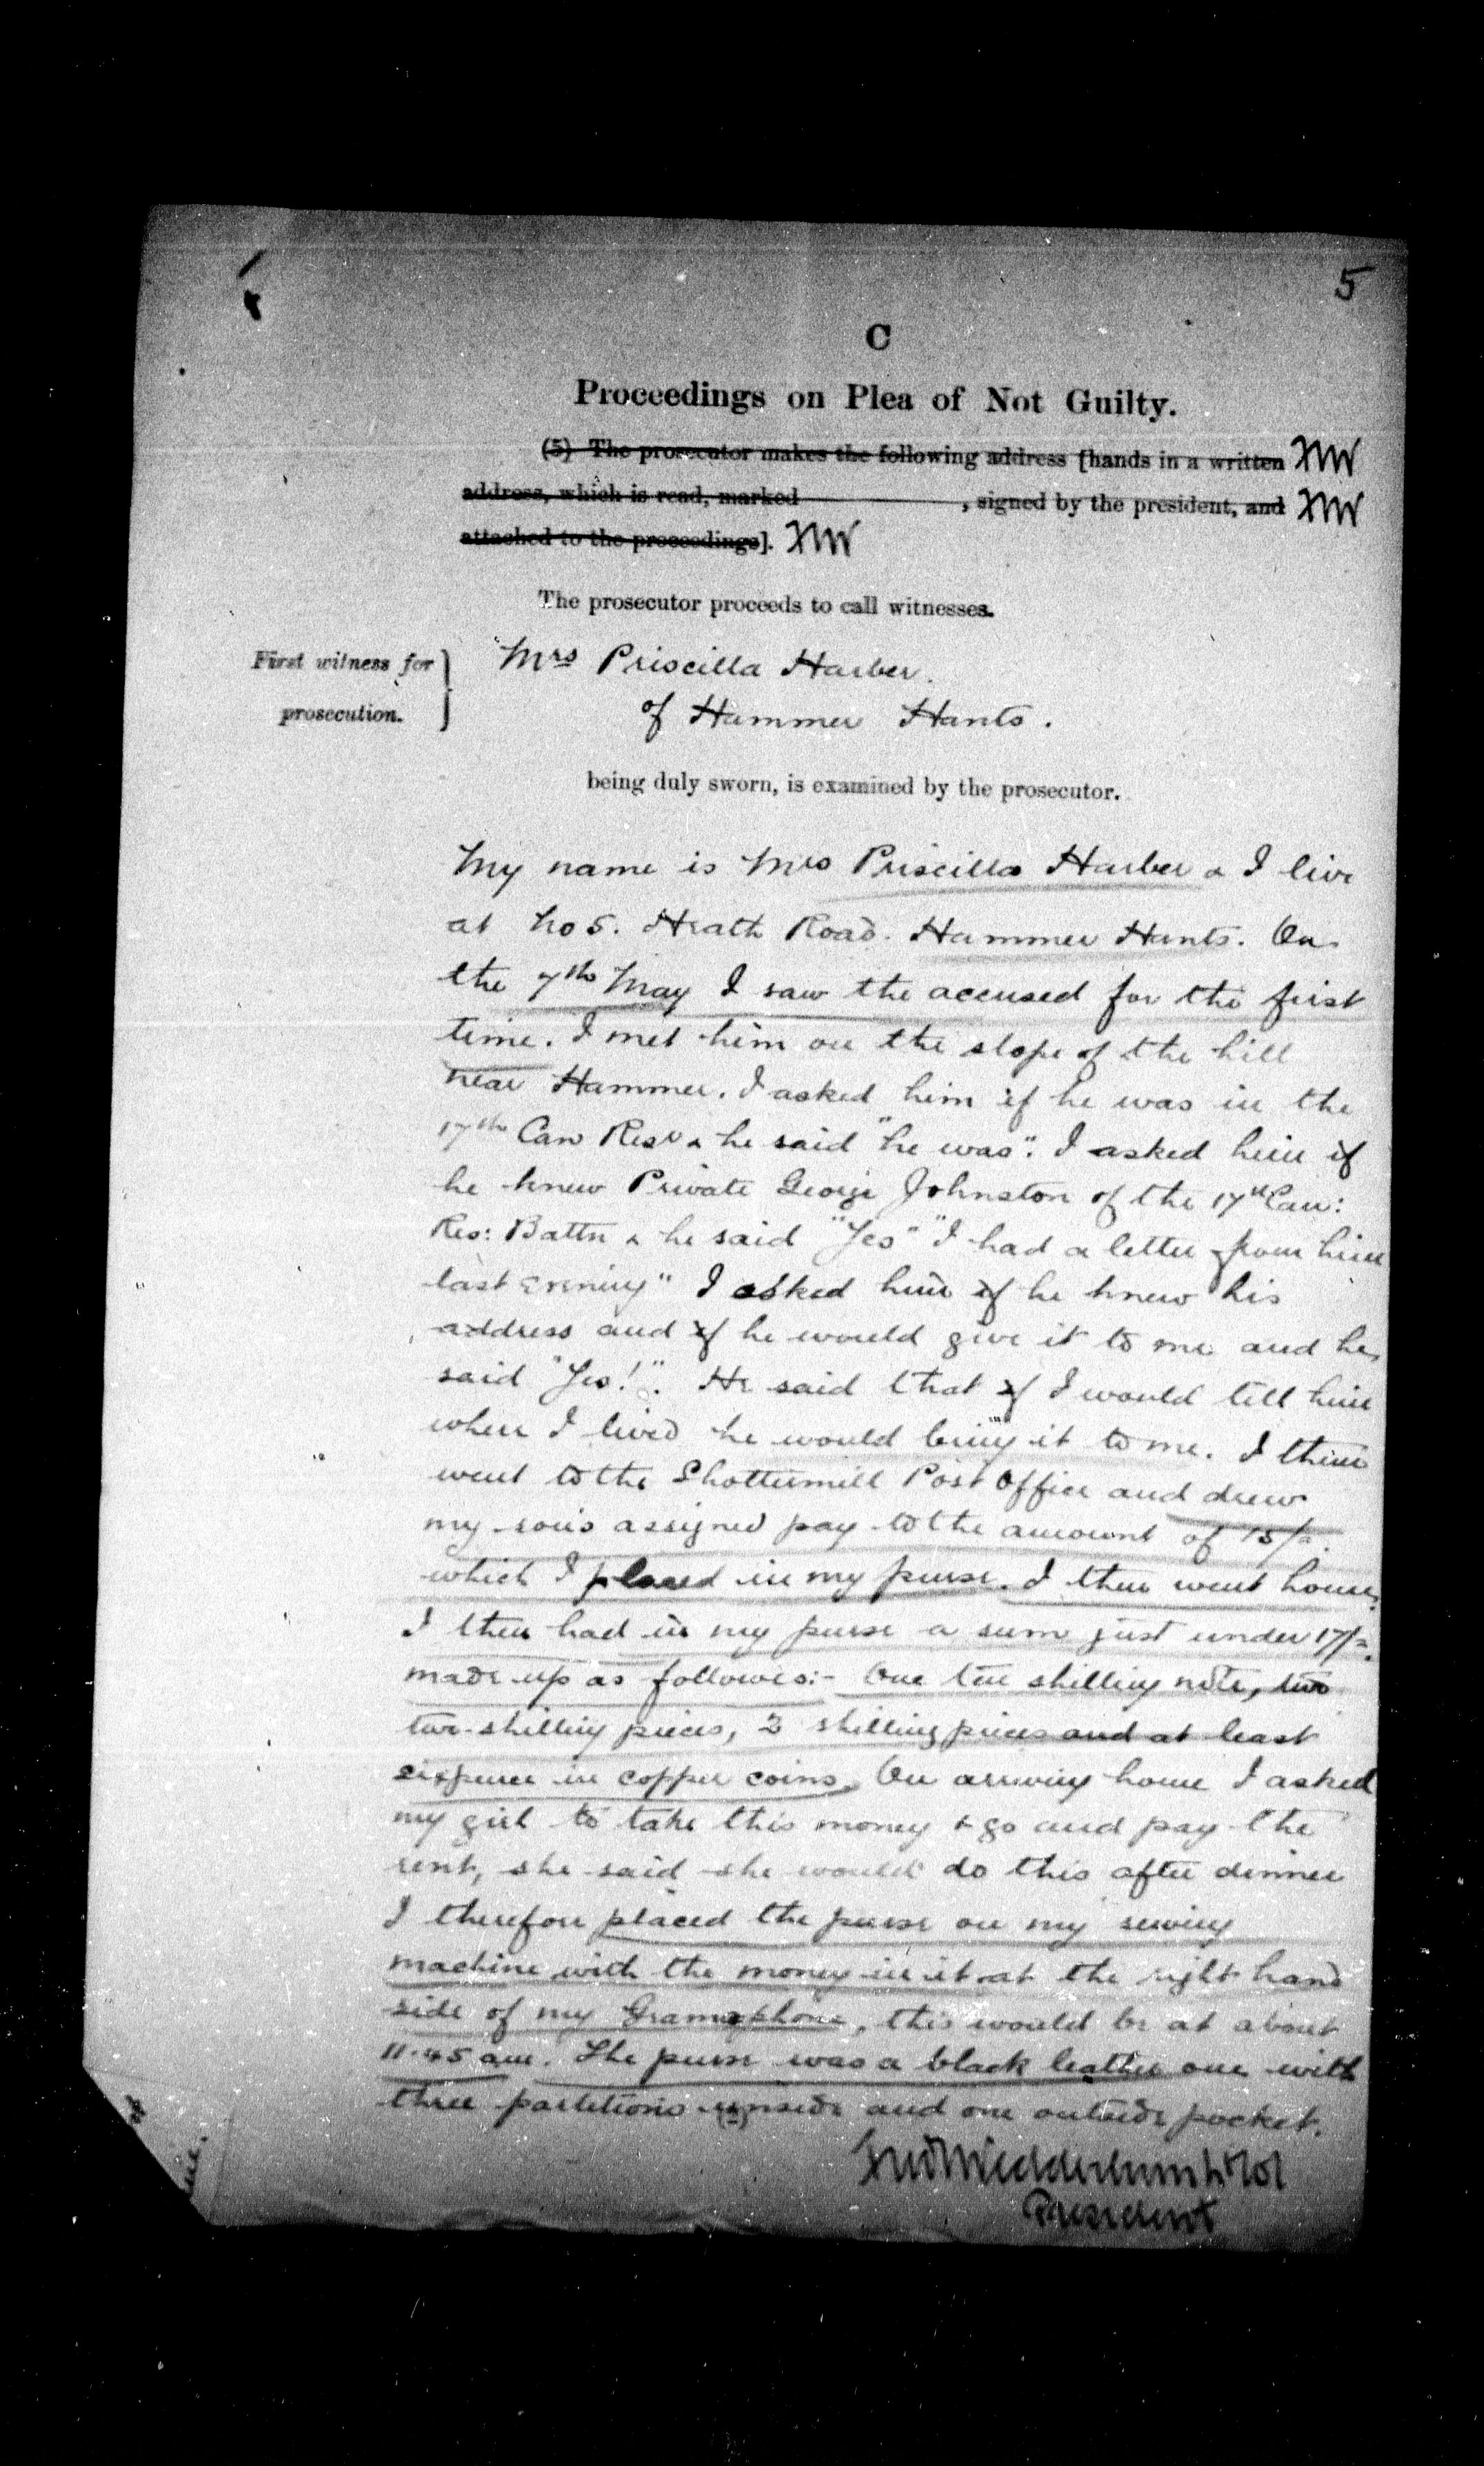 5
C
Proceedings on Plea of Not Guilty.
(5) The prosecutor makes the following address [hands in a written
address, which is read, marked , signed by the president, and
attached to the proceedings].
The prosecutor proceeds to call witnesses.
First witness for
prosecution.
Mrs Priscilla Harber.
of Hammer Hants.
being duly sworn, is examined by the prosecutor.
My name is Mrs Priscilla Harber & I live
at No 5. Heath Road. Hammer Hants. On
the 7th May I saw the accused for the first
time. I met him on the slope of the hill
near Hammer. I asked him if he was in the
17th Can Resv & he said "he was". I asked him if
he knew Private George Johnston of the 17th Can:
Res: Battn & he said "Yes" "I had a letter from him
last evening" I asked him if he knew his
address and if he would give it to me and he
said "Yes!". He said that if I would tell him
where I lived he would bring it to me. I then
went to the Shottermill Post Office and drew
my son's assigned pay to the amount of 15/-.
which I placed in my purse. I then went home.
I then had in my purse a sum just under 17/-.
made up as follows:- One ten shilling note, two
two-shilling pieces, 2 shilling pieces and at least
sixpence in copper coins. On arriving home I asked
my girl to take this money & go and pay the
rent, she said she would do this after dinner
I therefore placed the purse on my sewing
machine with the money in it at the right hand
side of my Gramophone, this would be at about
11.45 am. The purse was a black leather one with
three partitions inside and one outside pocket.
Wedderburn Lt Col
President